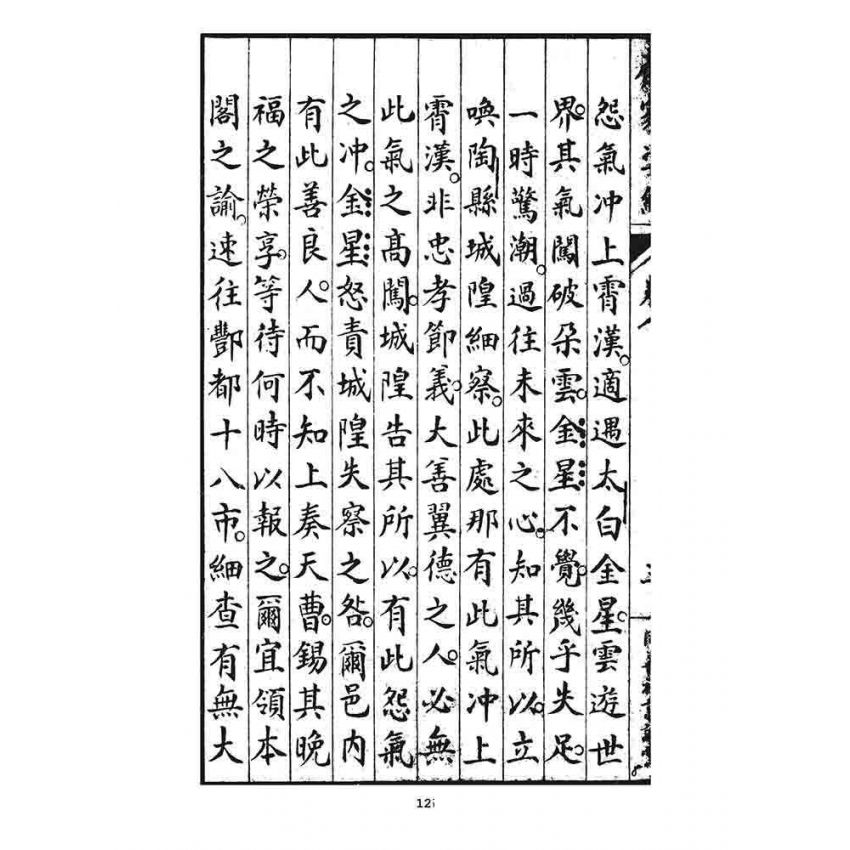 怨氣冲上霄漢。適遇太白金星。雲遊世
界。其氣闖破朵雲。金星不覺。幾乎失足。
一時驚潮。過往未來之心。知其所以。立
喚陶縣城隍細察。此處那有此氣冲上
霄漢。非忠孝節義。大善翼德之人。必無
此氣之高闖。城隍告其所以。有此怨氣
之冲。金星怒責城隍失察之咎。爾邑內
有此善良人。而不知上奏天曹。錫其晚
福之榮享。等待何時以報之。爾宜領本
閣之諭。速往酆都十八市。細查有無大
12